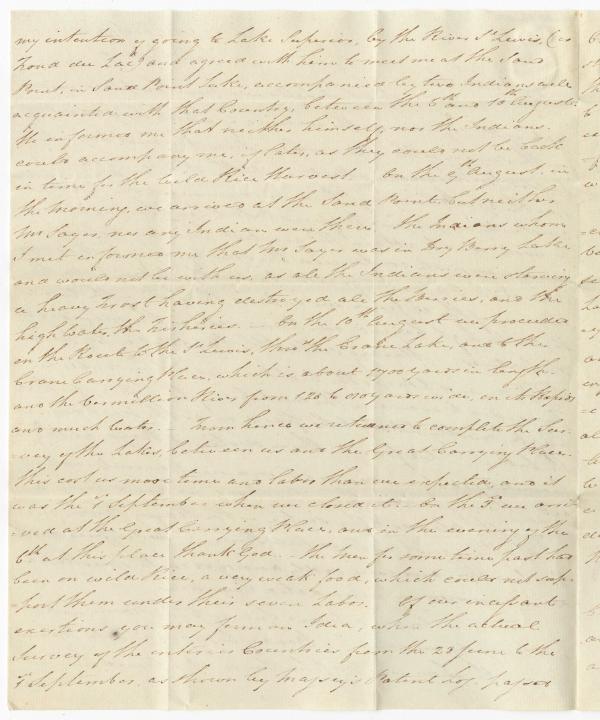 my intention of going to Lake Superior, by the River St Lewis, (or
Fond du Lac) and agreed with him to meet me at the Sand
Point, in Sand Point Lake, accompanied by two Indians well
acquainted with that Country, between the 6th and 10th August.
He informed me that neither himself, nor the Indians
could accompany me, if later, as they could not be back
in time for the Wild Rice Harvest On the 9th August, in
the morning, we arrived at the Sand Point, but neither
Mr Sayer, nor any Indian were there The Indians whom
I met informed me that Mr Sayer was in Dry Berry Lake
and would not be with us, as all the Indians were starving
a heavy Frost having destroyed all the Berries, and the
high Water, the Fisheries. - On the 10th August we proceeded
on the Route to the St Lewis, thro' the Crane Lake, and to the
Crane Carrying Place, which is about 1700 yards in length
and the Vermillion River from 120 to yards wide, on its Rapids
and much Water. - From hence we returned to complete the Sur-
-vey of the Lakes, between us and the Great Carrying Place
this cost us more time and labor than we expected, and it
was the 1st September when we closed it - On the we arri
-ved at the Great Carrying Place, and in the evening of the
6th at this place thank God. - the Men for some time past had
been on wild Rice, a very weak food, which could not sup-
-port them under their severe Labor. Of our incessant
exertions you may form an Idea, when the actual
Survey of the interior Countries from the 23 June to the
1st September, as shown by Massey's Patent Log passed